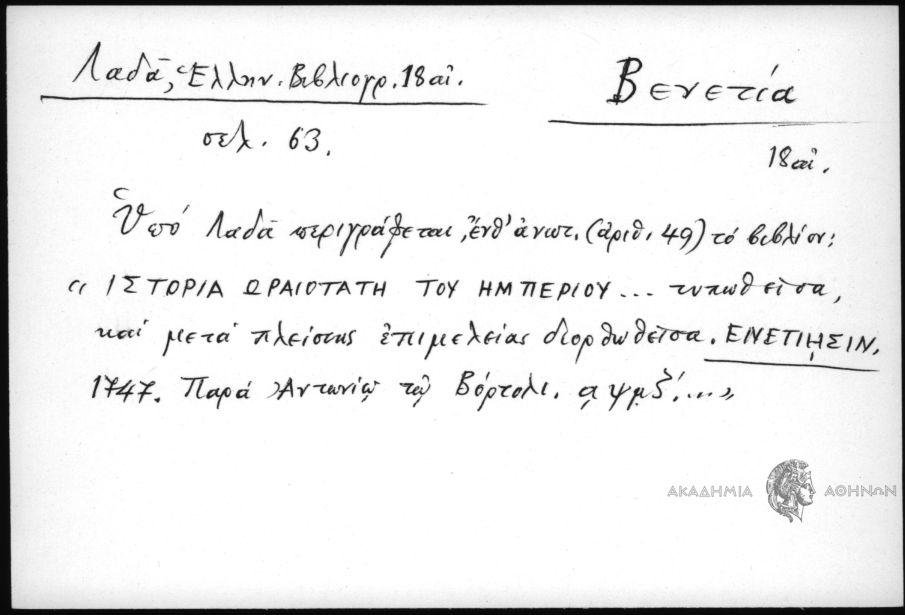 Λαδᾶ, Ἑλλην. Βιβλιογρ. 18 αἰ.
σελ. 63.
Βενετία
18 αἰ.
Ὑπό Λαδᾶ περιγράφεται, ἔνθ' ἀνωτ. (ἀριθ. 49) τό βιβλίον:
« ΙΣΤΟΡΙΑ ΩΡΑΙΟΤΑΤΗ ΤΟΥ ΗΜΠΕΡΙΟΥ... τυπωθεῖσα,
καί μετά πλείστης ἐπιμελείας διορθωθεῖσα. ΕΝΕΤΙῌΣΙΝ.
1747. Παρά Ἀντωνίῳ τῷ Βόρτολι. ͵αψμζ΄....»
ΑΚΑΔΗΜΙΑ ΑΘΗΝΩΝ